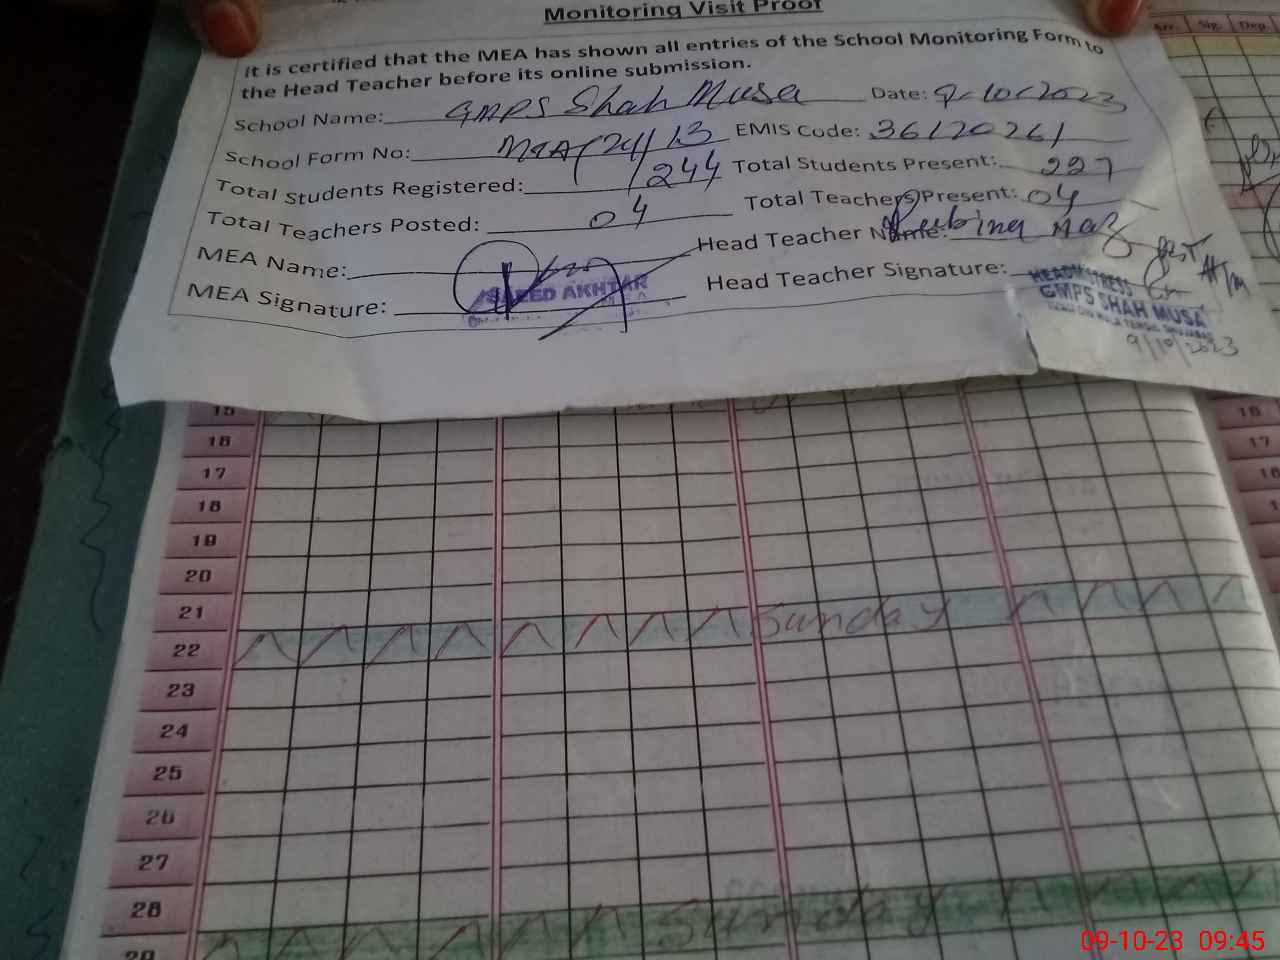 Monitoring Visit Proof
It is certified that the MEA has shown all entries of the School Monitoring Form to
the Head Teacher before its online submission.
School Name: GMPS Shah Musa Date: 9-10-2023
School Form No: MEA/24/13 EMIS Code: 36120261
Total Students Registered: 244 Total Students Present: 227
Total Teachers Posted: 04 Total Teachers Present: 04
MEA Name: Head Teacher Name: Rubina Naz
MEA Signature: SAEED AKHTAR Head Teacher Signature:
HEADMISTRESS
GMPS SHAH MUSA
9/10/2023
Arr. Sig. Dep.
15
16
17
18
19
20
21 Sunday
22
23
24
25
26
27
28 Sunday
29
16
17
18
09-10-23 09:45